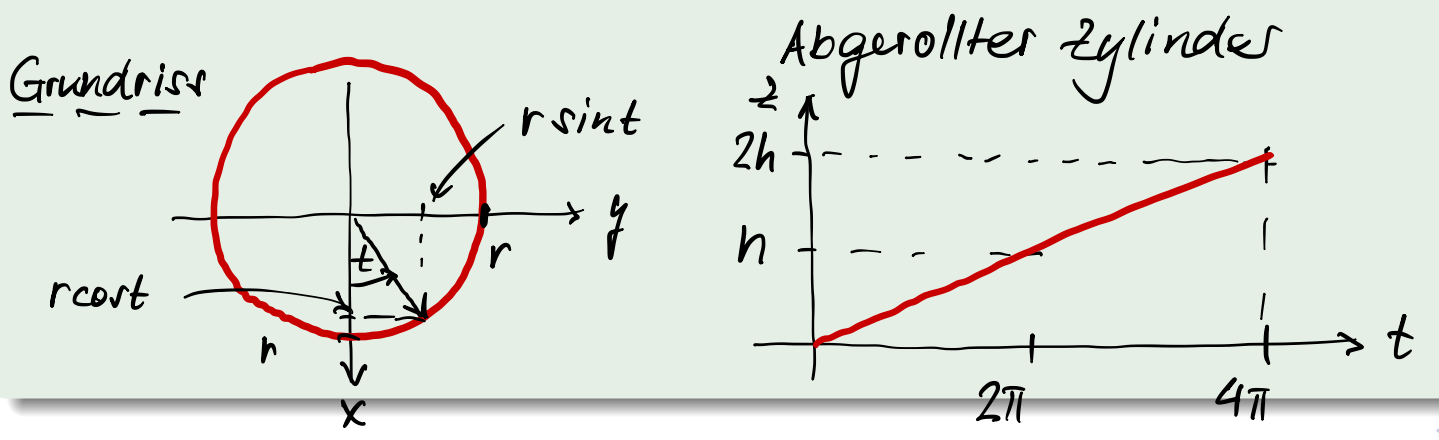 Grundriss
r sint
y
r
t
rcost
r
x
Abgerollter Zylinder
z
2h
h
t
2π
4π